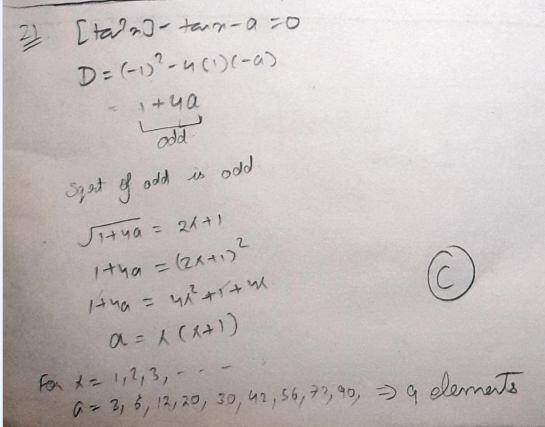 21 [tan²x] - tan x - a = 0
D = (-1)² - 4(1)(-a)
= 1+4a
odd
Sqrt of odd is odd.
√1+4a = 2λ+1
1+4a = (2λ+1)²
1+4a = 4λ²+1+4λ
a = λ(λ+1)
C
For λ = 1, 2, 3, - - -
a = 2, 6, 12, 20, 30, 42, 56, 72, 90, ⇒ 9 elements